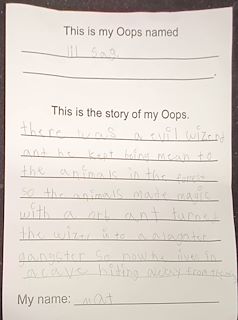 This is my Oops named
lil gag
This is the story of my Oops.
there was a evil wizerd
and he kept being mean to
the animals in the forest
so the animals made magic
with a orb ant turned
the wizerd into a alagater
gangster so now he lives in
a cave hiding away from
My name: mat